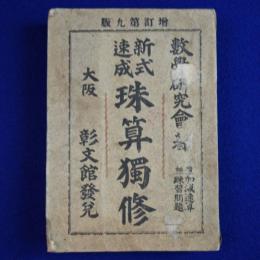 版九第訂增
數學研究會著
附加減速算
練習問題
新式
速成
珠算獨修
大阪
彰文館發兌